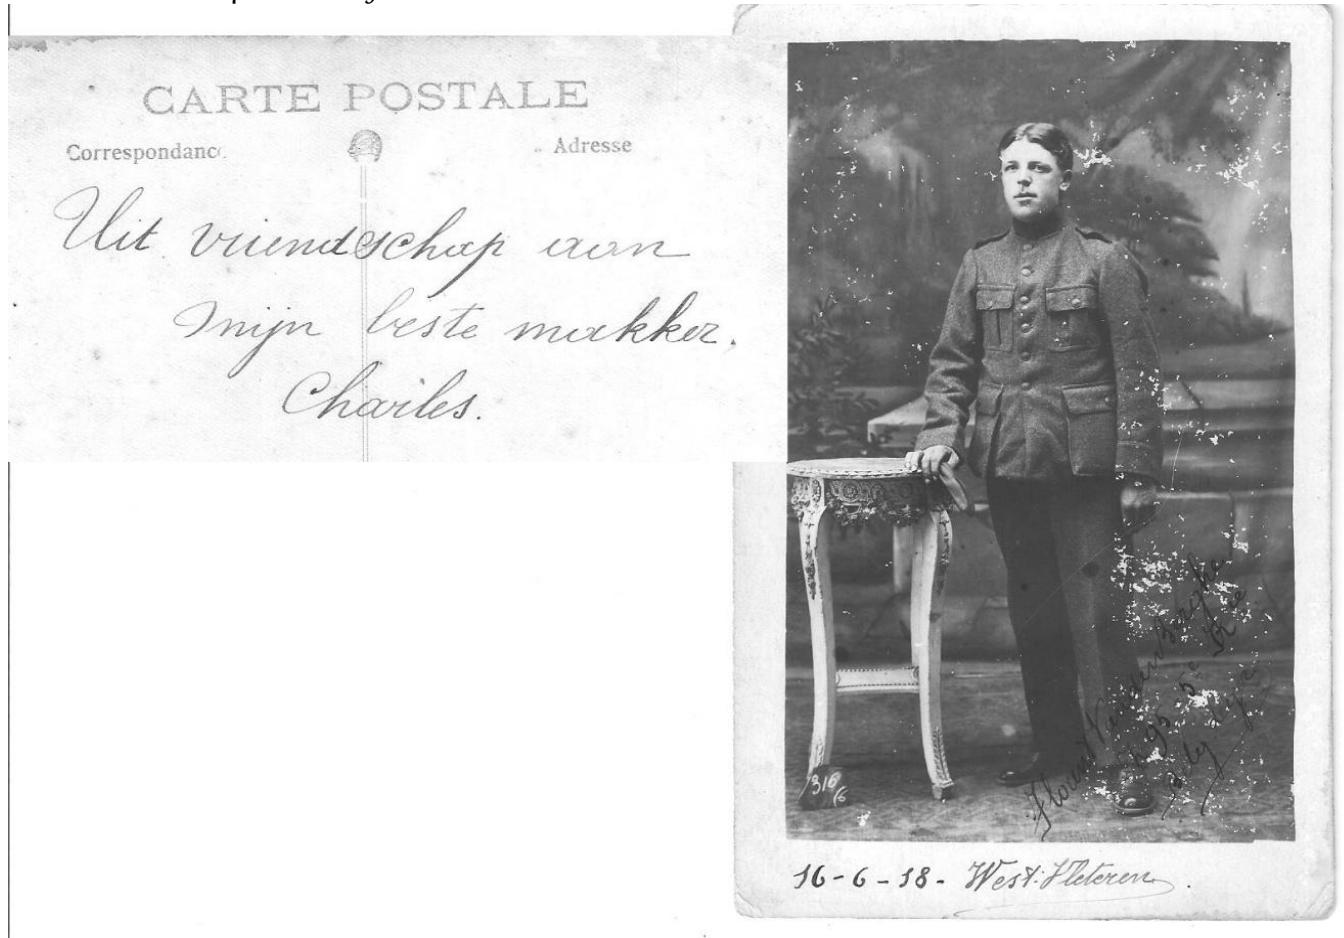 CARTE POSTALE
Correspondance
Adresse
Uit vriendschap aan
mijn beste makker.
Charles.
Florent Vanden Berghe
95 5e
316
6
16-6-18- West-Vleteren.